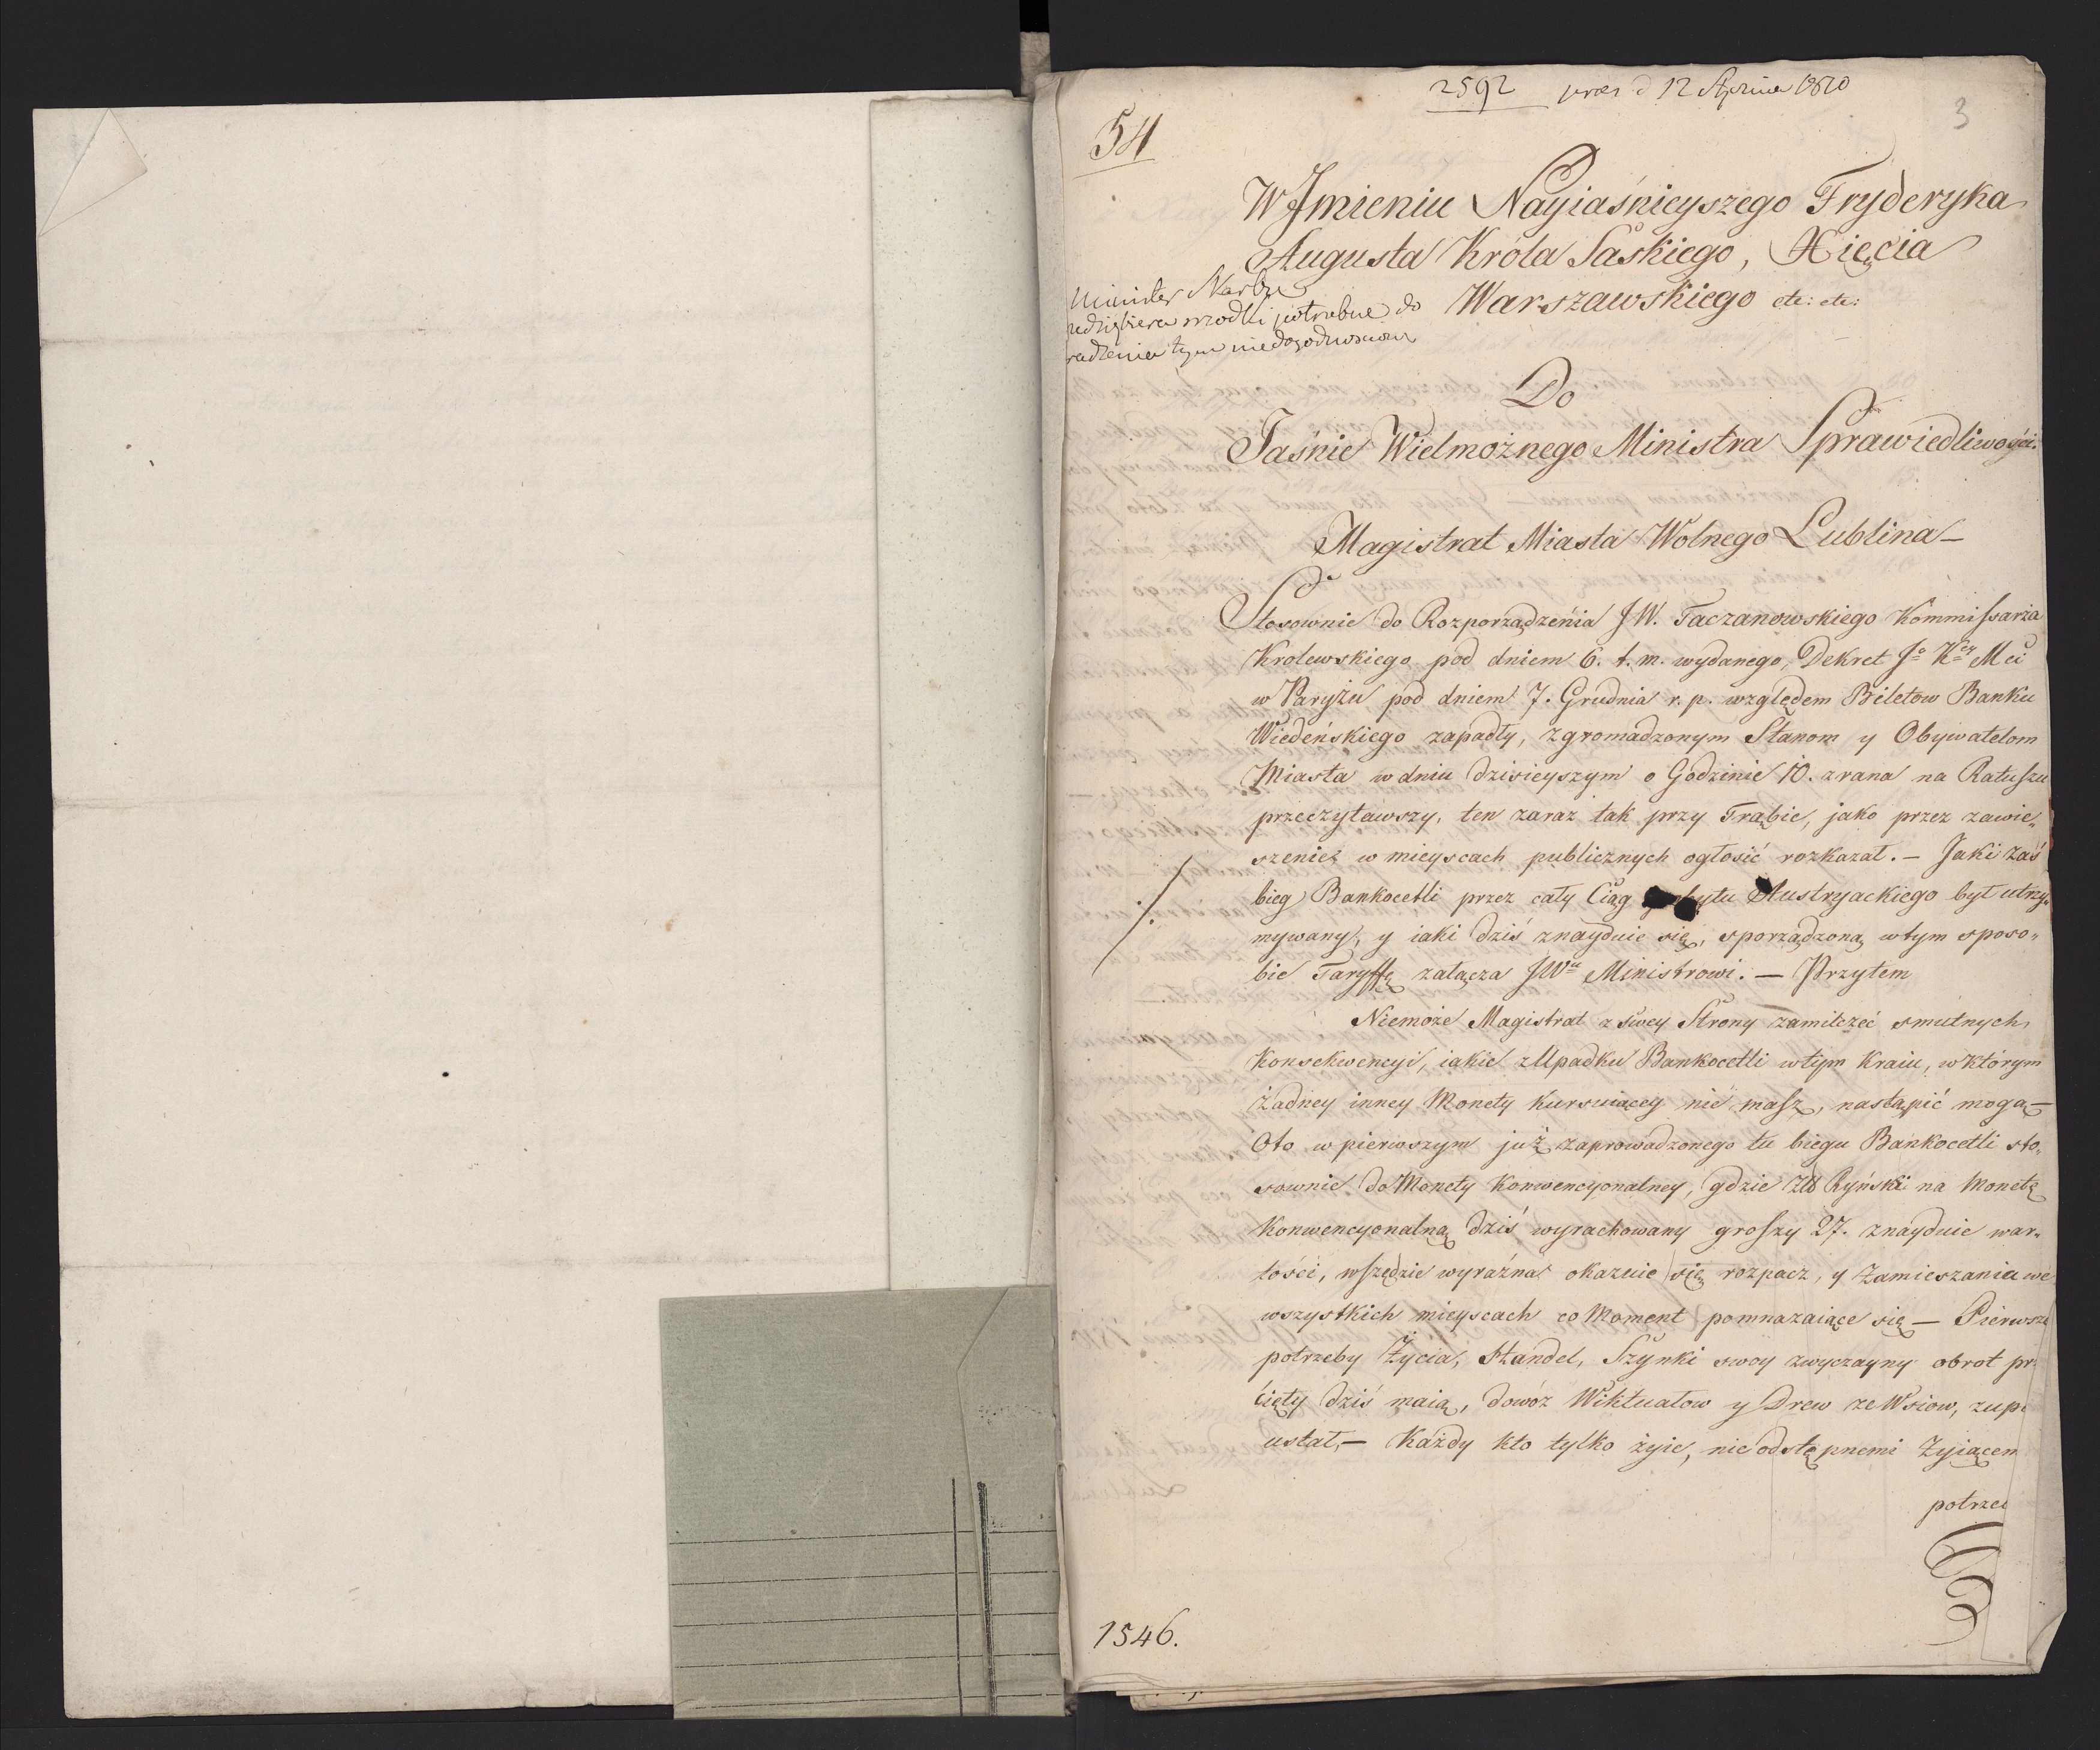 2592 præs d 12 Stycznia 1810
3
54
W Jmieniu Nayiaśnieyszego Fryderyka
Augusta Króla Saskiego, Xięcia
Warszawskiego etc: etc:
Minister Skarbu
przedsiębierze srodki potrzebne do
radzenia tym niedogodnosciom
Do
Jaśnie Wielmożnego Ministra Sprawiedliwości.
Magistrat Miasta Wolnego Lublina –
Stosownie do Rozporządzenia JW. Taczanowskiego Kommißarza
Krolewskiego pod dniem 6. t. m. wydanego, Dekret Jo Kcy Mci
w Paryżu pod dniem 7. Grudnia r. p. względem Biletow Banku
Wiedeńskiego zapadły, zgromadzonym Stanom y Obywatelom
Miasta w dniu dzisieyszym o Godzinie 10. zrana na Ratuszu
przeczytawszy, ten zaraz tak przy Trąbie, jako przez zawie„
szenie w mieyscach publicznych ogłosić rozkazał. – Jaki zaś
bieg Bankocetli przez cały Ciąg Austryackiego był utrzy„
mywany, y iaki dziś znayduie się, sporządzoną w tym sposo„
bie Taryffę załącza JWu Ministrowi. – Przytem
Niemoże Magistrat z swey Strony zamilczeć smutnych
Konsekwencyi, iakie z Upadku Bankocetli w tym Kraiu, w którym
żadney inney Monety kursuiącey nie masz, nastąpić mogą –
Oto w pierwszym już zaprowadzonego tu biegu Bankocetli sto„
sownie do Monety Konwencyonalney, gdzie Zł Ryński na Monetę
Konwencyonalną dziś wyrachowany groszy 27. znayduie war„
tości, wszędzie wyraźna okazuie się rozpacz, y Zamieszania we
wszystkich mieyscach co Moment pomnażaiące się – Pierwsze
potrzeby Życia, Handel, Szynki swoy zwyczayny obrot prz
cięty dziś maią, dowóz Wiktuałow y Drew ze Wsiow, zupe
ustał, – Każdy kto tylko żyie, nie odstępnemi Zyiącem
potrze
1546.